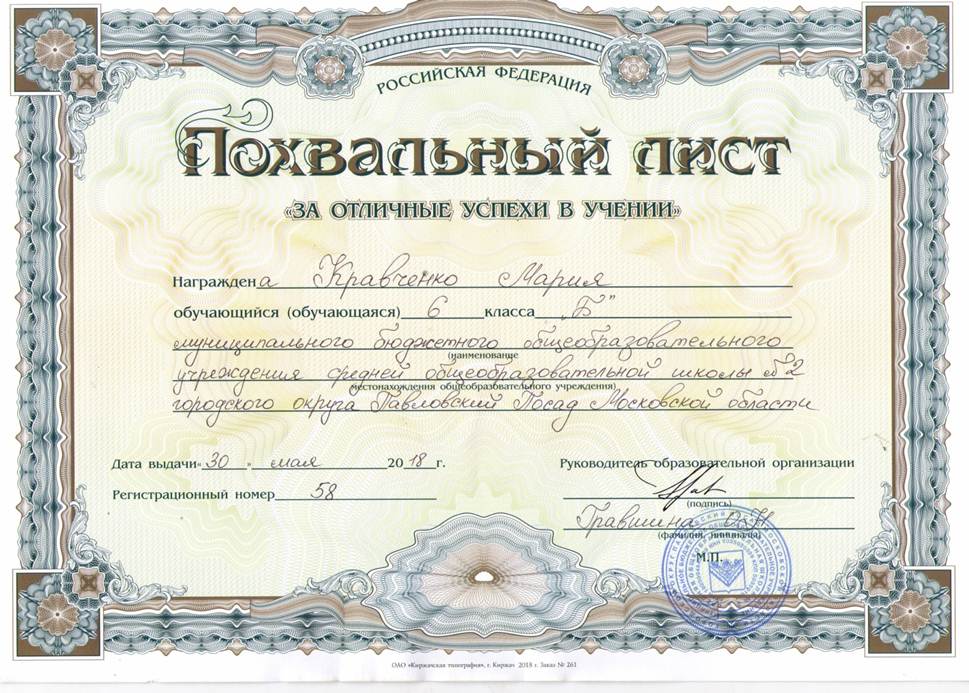 РОССИЙСКАЯ ФЕДЕРАЦИЯ
Похвальный лист
«ЗА ОТЛИЧНЫЕ УСПЕХИ В УЧЕНИИ»
Награждена Кравченко Мария
обучающийся (обучающаяся) 6 класса „Б"
муниципального бюджетного общеобразовательного
(наименование
учреждения средней общеобразовательной школы №2
местонахождения общеобразовательного учреждения)
городского округа Павловский Посад Московской области
Дата выдачи «30» мая 2018 г.
Регистрационный номер 58
Руководитель образовательной организации
(подпись)
Гравшина О.Н
(фамилия, инициалы)
М.П.
ОАО «Киржачская типография», г. Киржач 2018 г. Заказ № 261